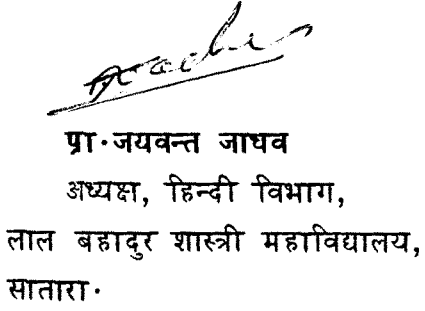 प्रा·जयवन्त जाधव
अध्यक्ष, हिन्दी विभाग,
लाल बहादुर शास्त्री महाविद्यालय,
सातारा·